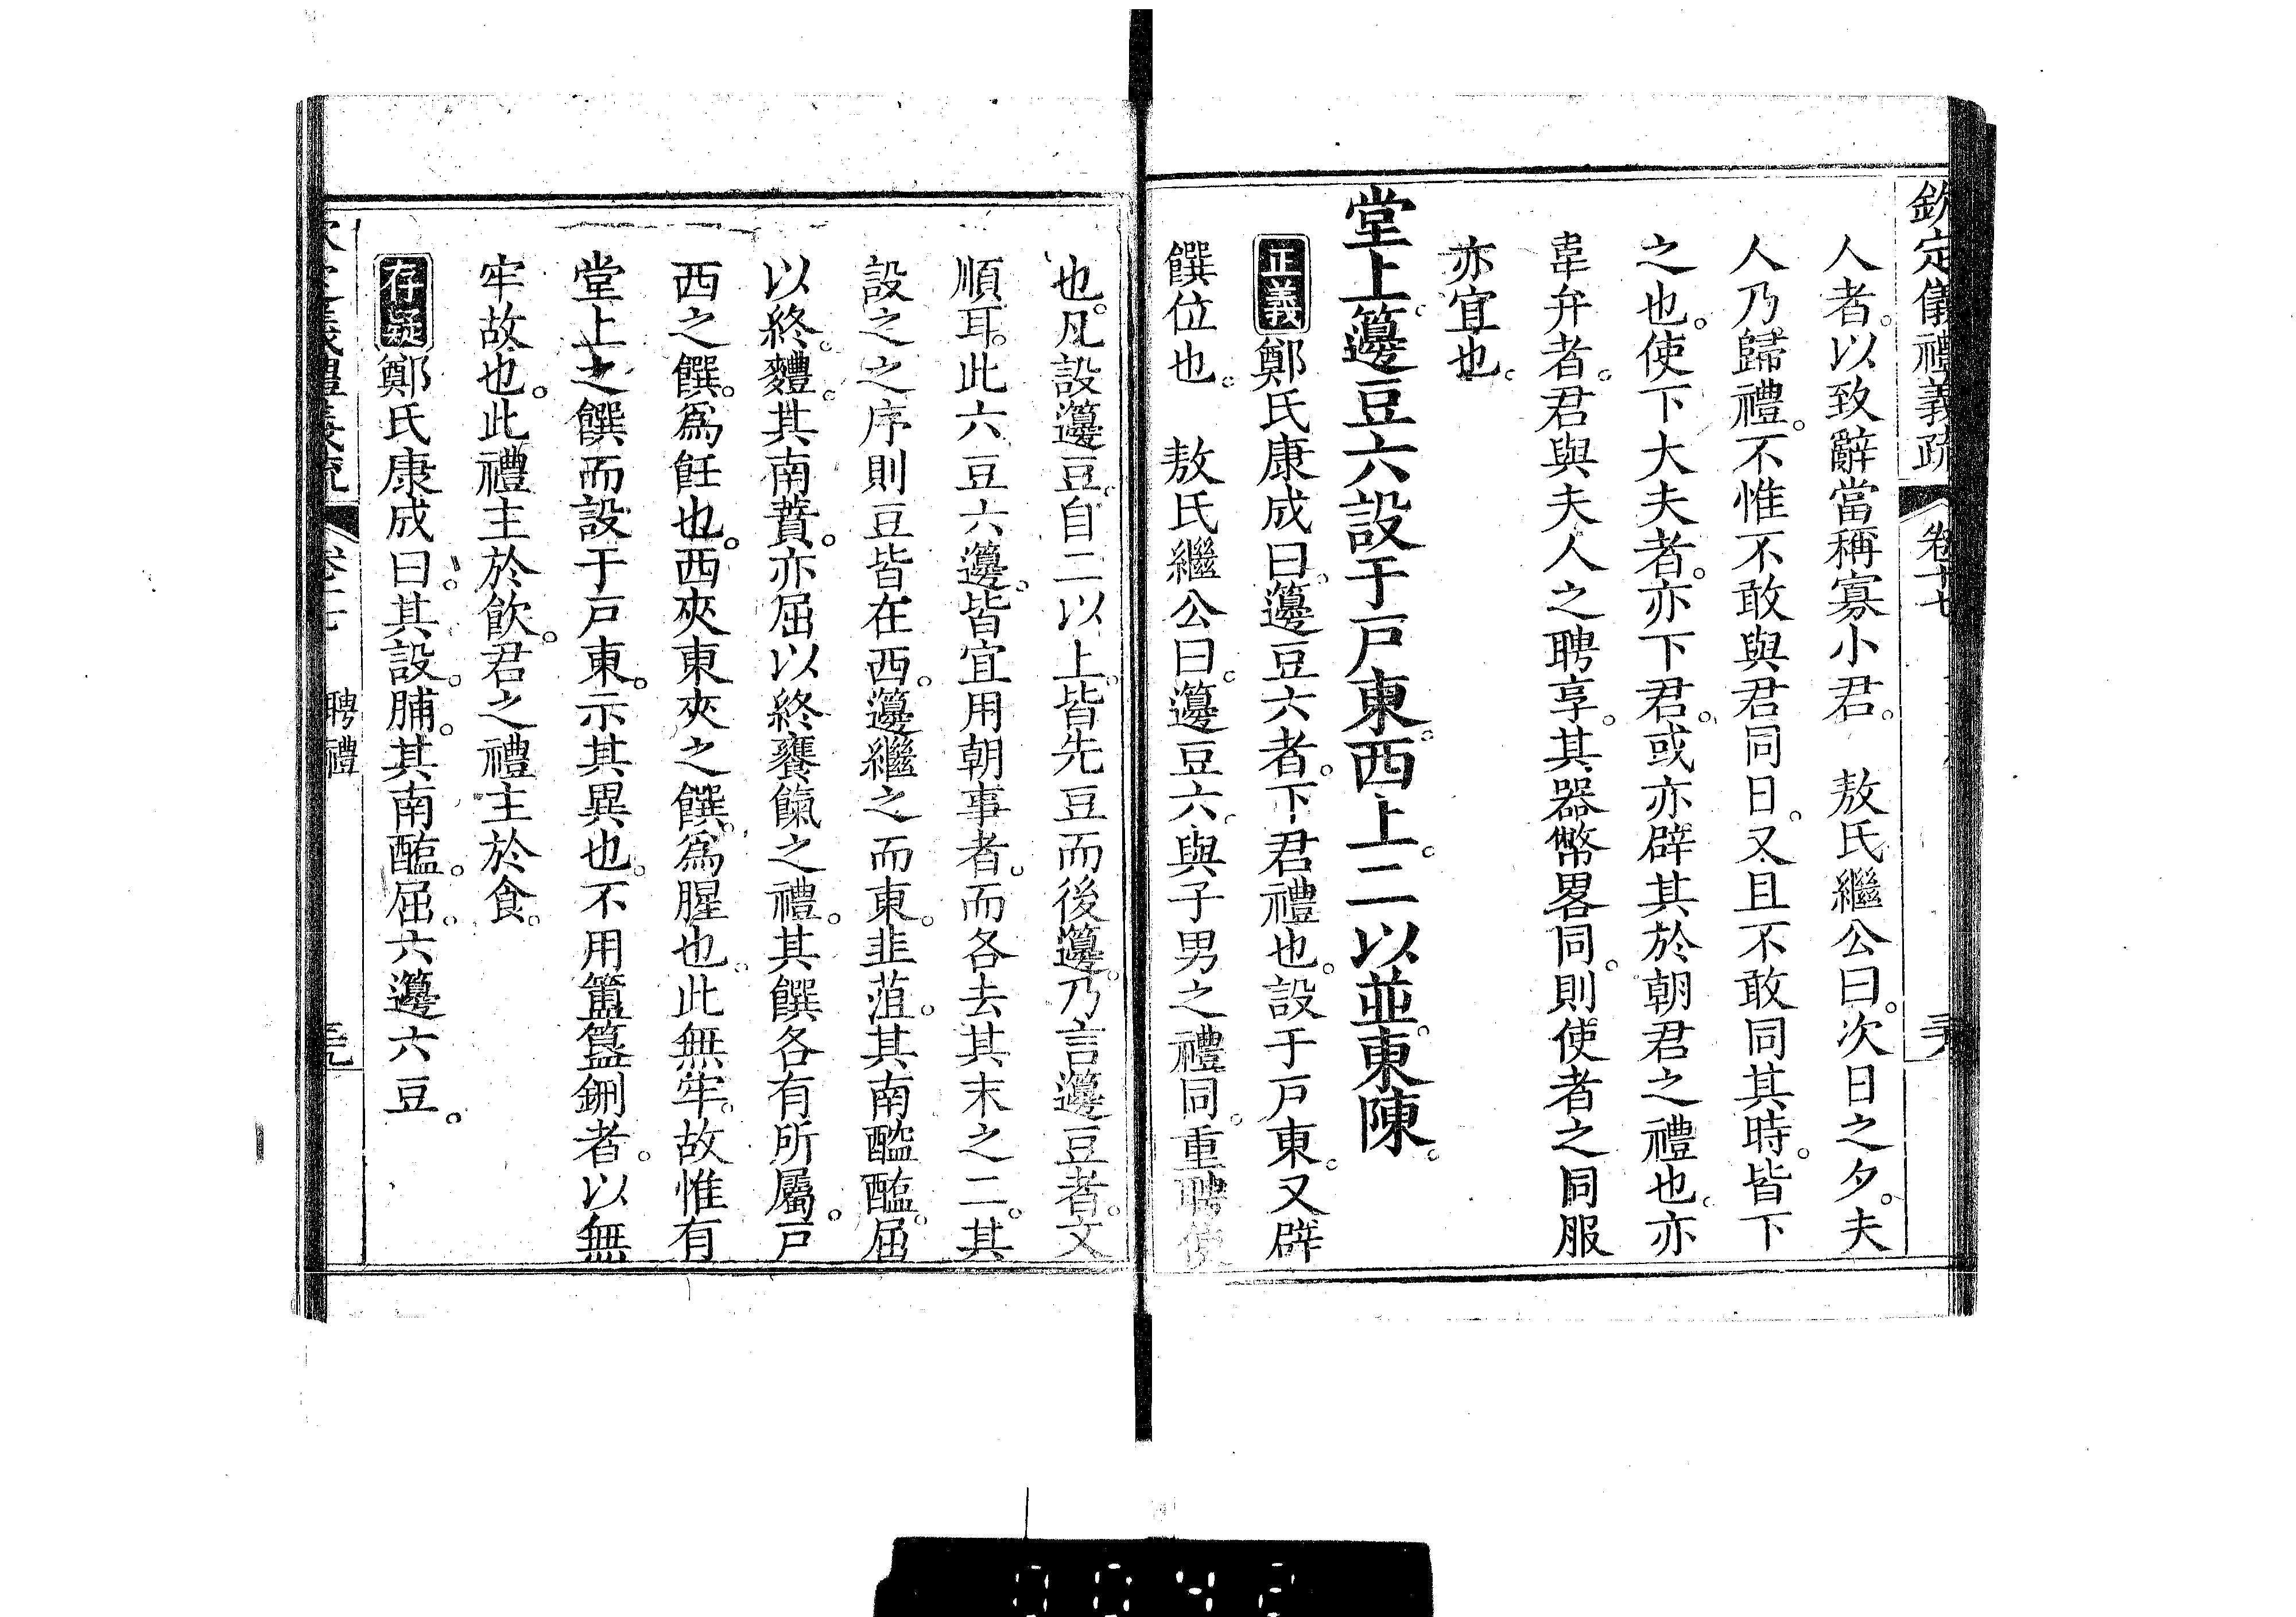 欽定儀禮義疏　卷十七
人者。以致辭當稱寡小君。　敖氏繼公曰。次日之夕。夫
人乃歸禮。不惟不敢與君同日。又且不敢同其時。皆下
之也。使下大夫者。亦下君。或亦辟其於朝君之禮也。亦
韋弁者。君與夫人之聘享。其器幣畧同。則使者之同服
亦宜也。
堂上籩豆六設于戸東。西上。二以並。東陳。
正義鄭氏康成曰。籩豆六者。下君禮也。設于戸東。又辟
饌位也。　敖氏繼公曰。籩豆六。與子男之禮同。重聘使
也。凡設籩豆。自二以上。皆先豆而後籩。乃言籩豆者。文
順耳。此六豆六籩。皆宜用朝事者。而各去其末之二。其
設之之序則豆皆在西。籩繼之而東。韭菹。其南醓醢。屈
以終。麷。其南蕡。亦屈以終饔餼之禮。其饌各有所屬。戸
西之饌。爲飪也。西夾東夾之饌。爲腥也。此無牢。故惟有
堂上之饌而設于戸東。示其異也。不用簠簋鉶者。以無
牢故也。此禮主於飲。君之禮主於食。
存疑鄭氏康成曰。其設。脯。其南醢。屈。六籩六豆。
聘禮